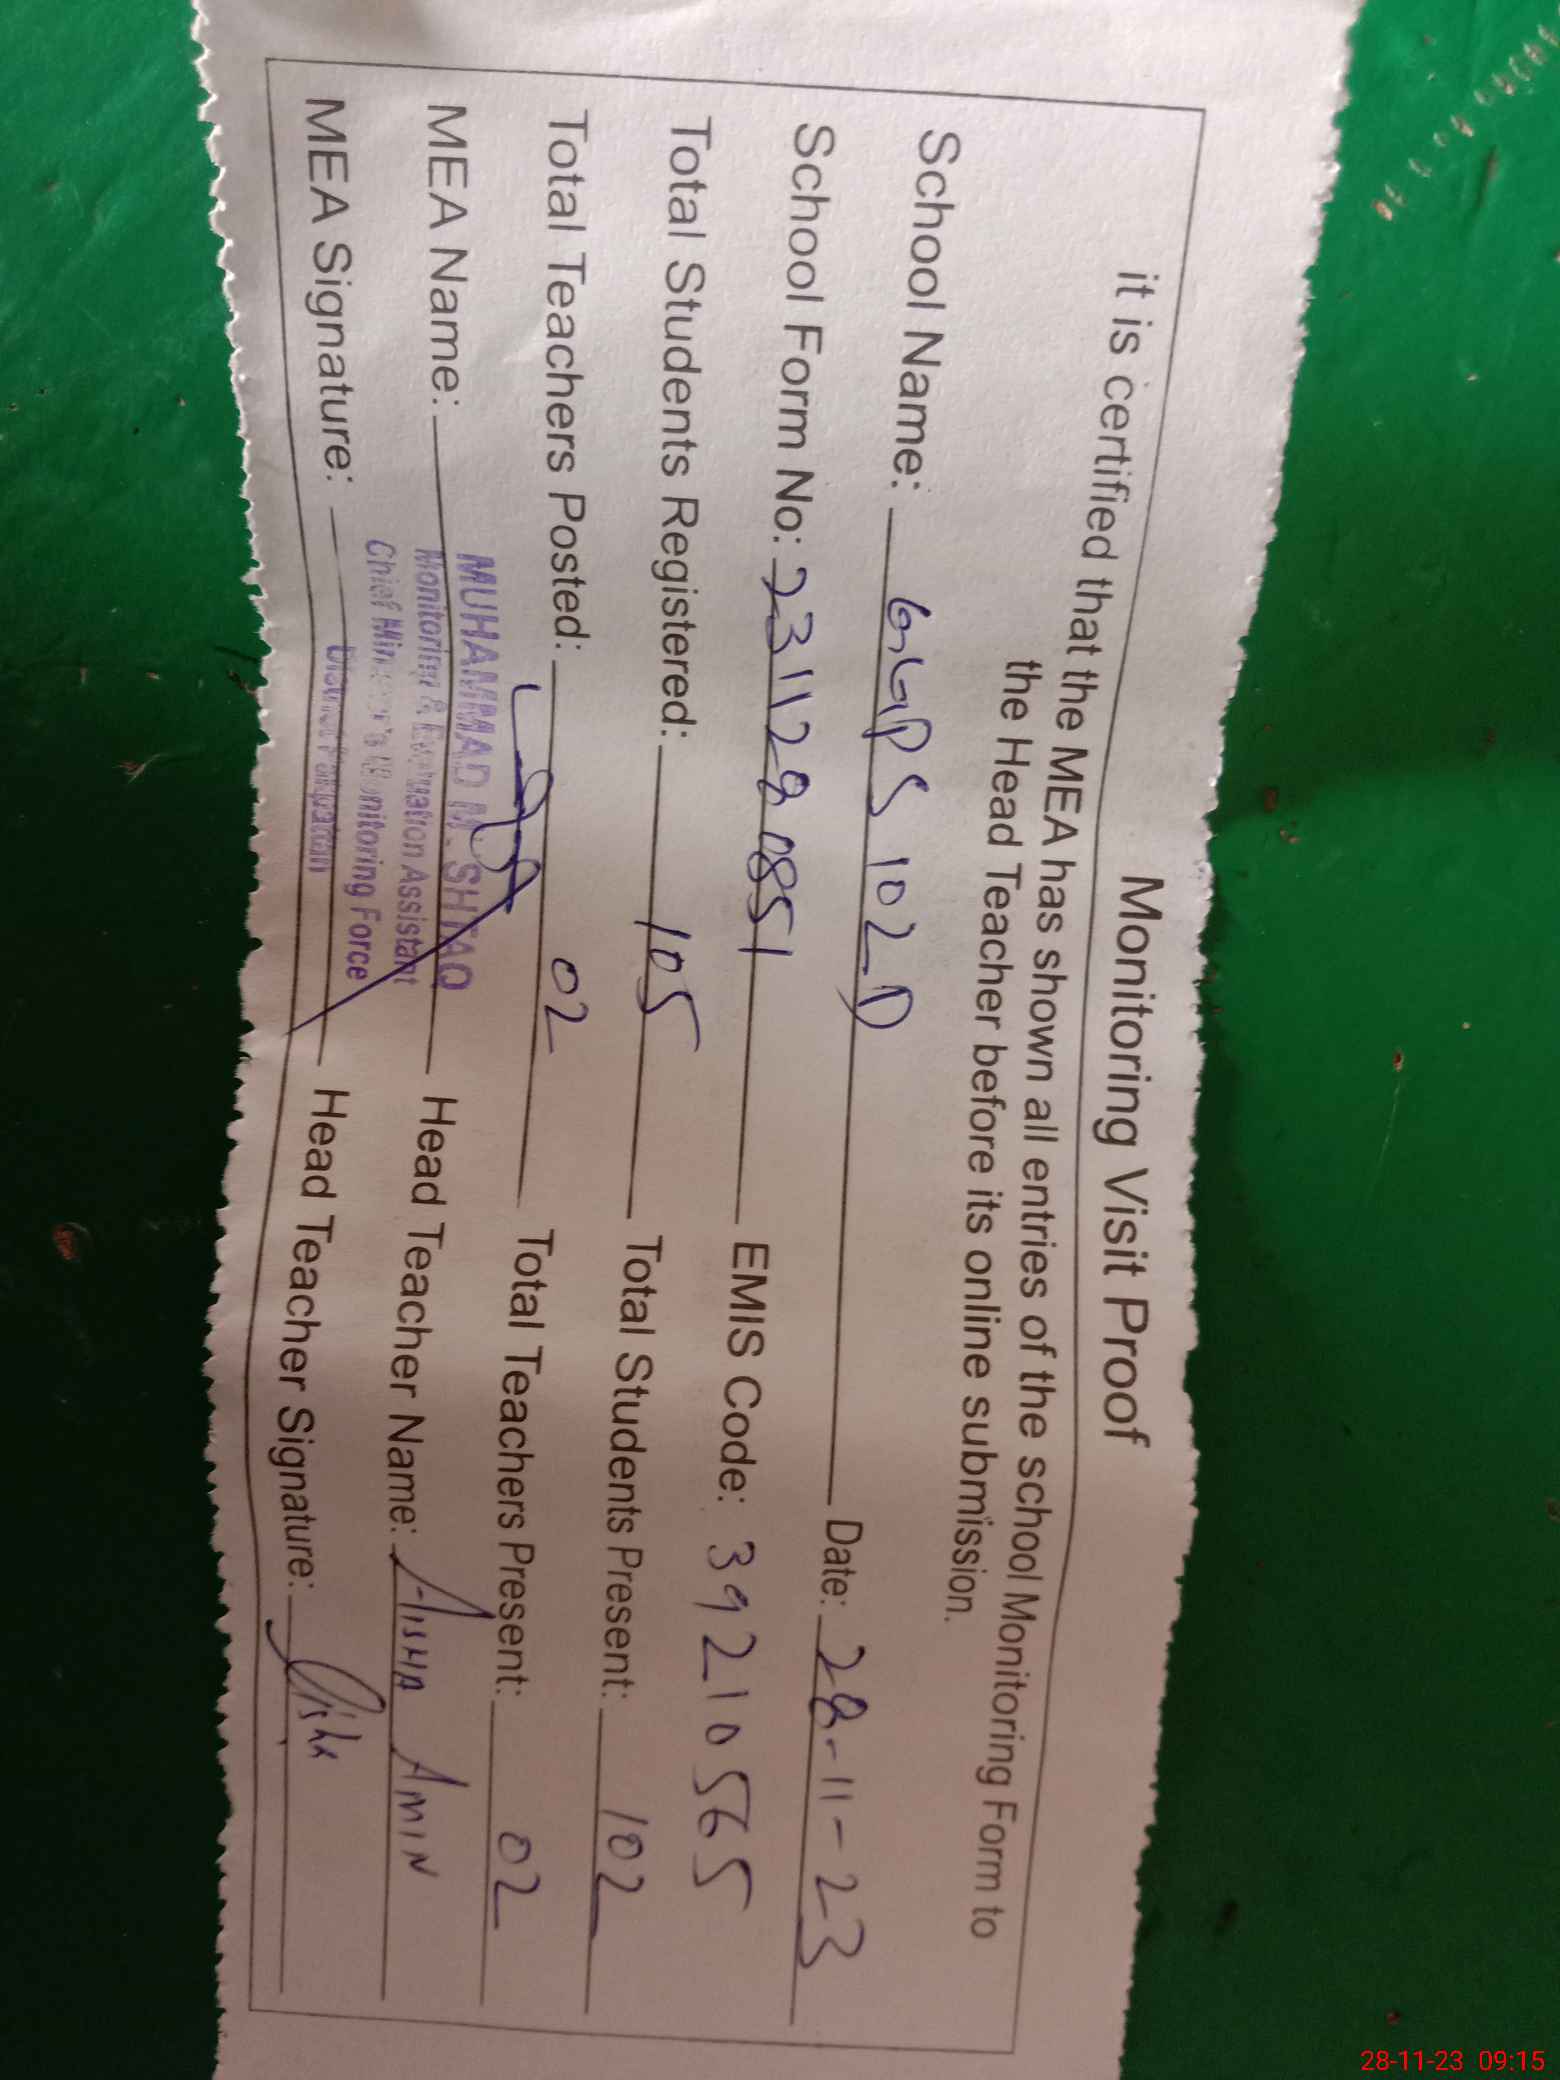 Monitoring Visit Proof
it is certified that the MEA has shown all entries of the school Monitoring Form to
the Head Teacher before its online submission.
School Name: GGPS 102D Date: 28-11-23
School Form No: 231128 0851 EMIS Code: 39210565
Total Students Registered: 105 Total Students Present: 102
Total Teachers Posted: 02 Total Teachers Present: 02
MEA Name: MUHAMMAD MUSHTAQ Head Teacher Name: AISHA AMIN
Monitoring & Evaluation Assistant
Chief Minister's Monitoring Force
District Pakpattan
MEA Signature: Head Teacher Signature: Aisha
28-11-23 09:15